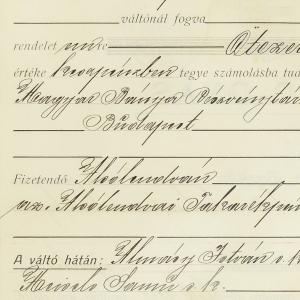 váltónál fogva
rendelet mre Ötezer
értéke készpénzben tegye számolásba tud
Magyar Bánya Részvénytár
Budapest
Fizetendő Alsólendván
az. Alsólendvai Takarékpén
A váltó hátán: Almásy István s. k.
Samu s. k.